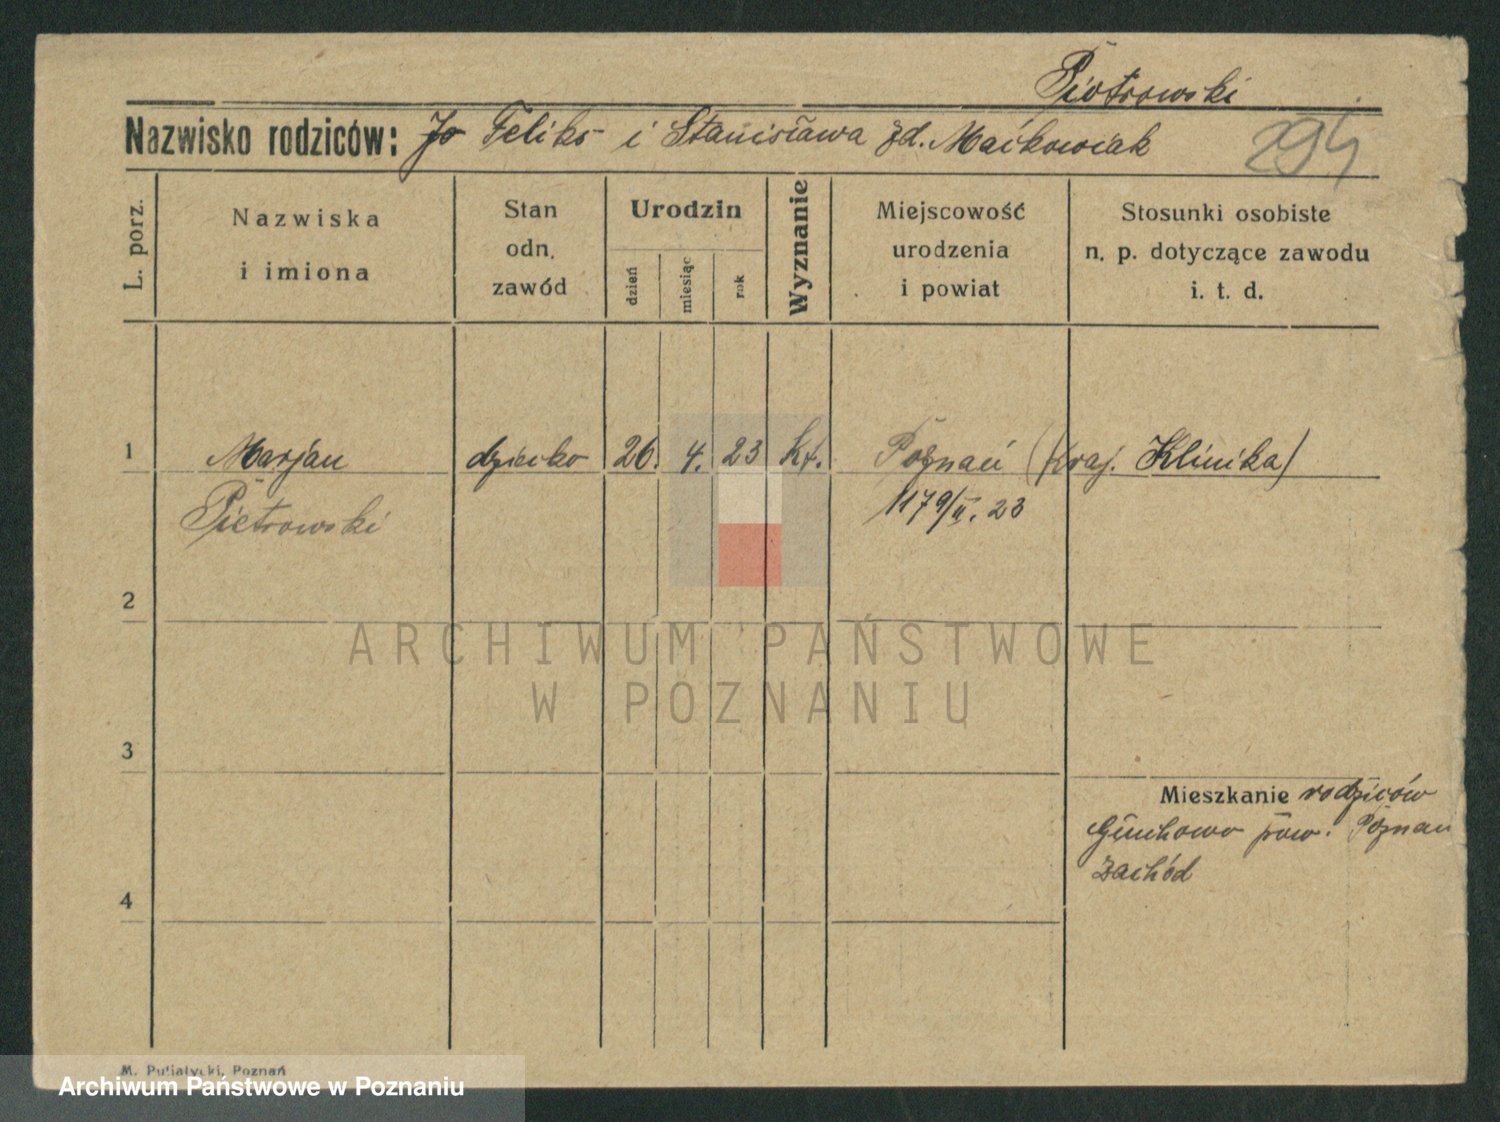 Piotrowski
Nazwisko rodziców: Feliks i Stanisława zd. Maćkowiak
294
L. porz.
Nazwiska
i imiona
Stan
odn.
zawód
Urodzin
dzień
miesiąc
rok
Wyznanie
Miejscowość
urodzenia
i powiat
Stosunki osobiste
n. p. dotyczące zawodu
i. t. d.
1 Marjan dziecko 26. 4. 23 kt. Poznań (Kraj. Klinika)
Piotrowski 1179/II. 23
2
ARCHIWUM PAŃSTWOWE
W POZNANIU
3
Mieszkanie rodziców
Głuchowo pow. Poznań
Zachód
4
M. Putiatycki, Poznań
Archiwum Państwowe w Poznaniu